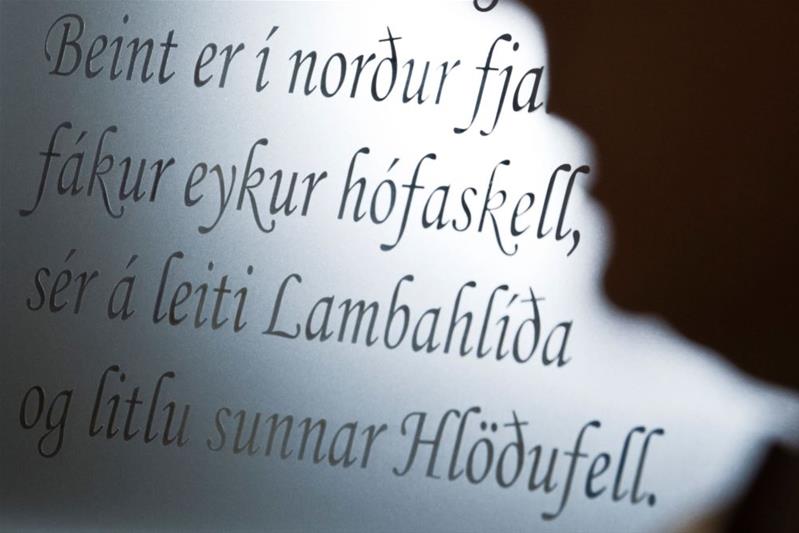 Beint er í norður fja
fákur eykur hófaskell,
sér á leiti Lambahlíða
og litlu sunnar Hlöðufell.